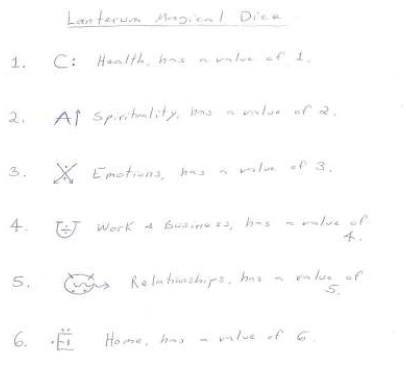 Lanterum Magical Dice
1. C: Health, has a value of 1.
2. A↑ Spirituality, has a value of 2.
3. Emotions, has a value of 3.
4. Work & Business, has a value of
4.
5. Relationships, has a value of
5.
6. Home, has a value of 6.